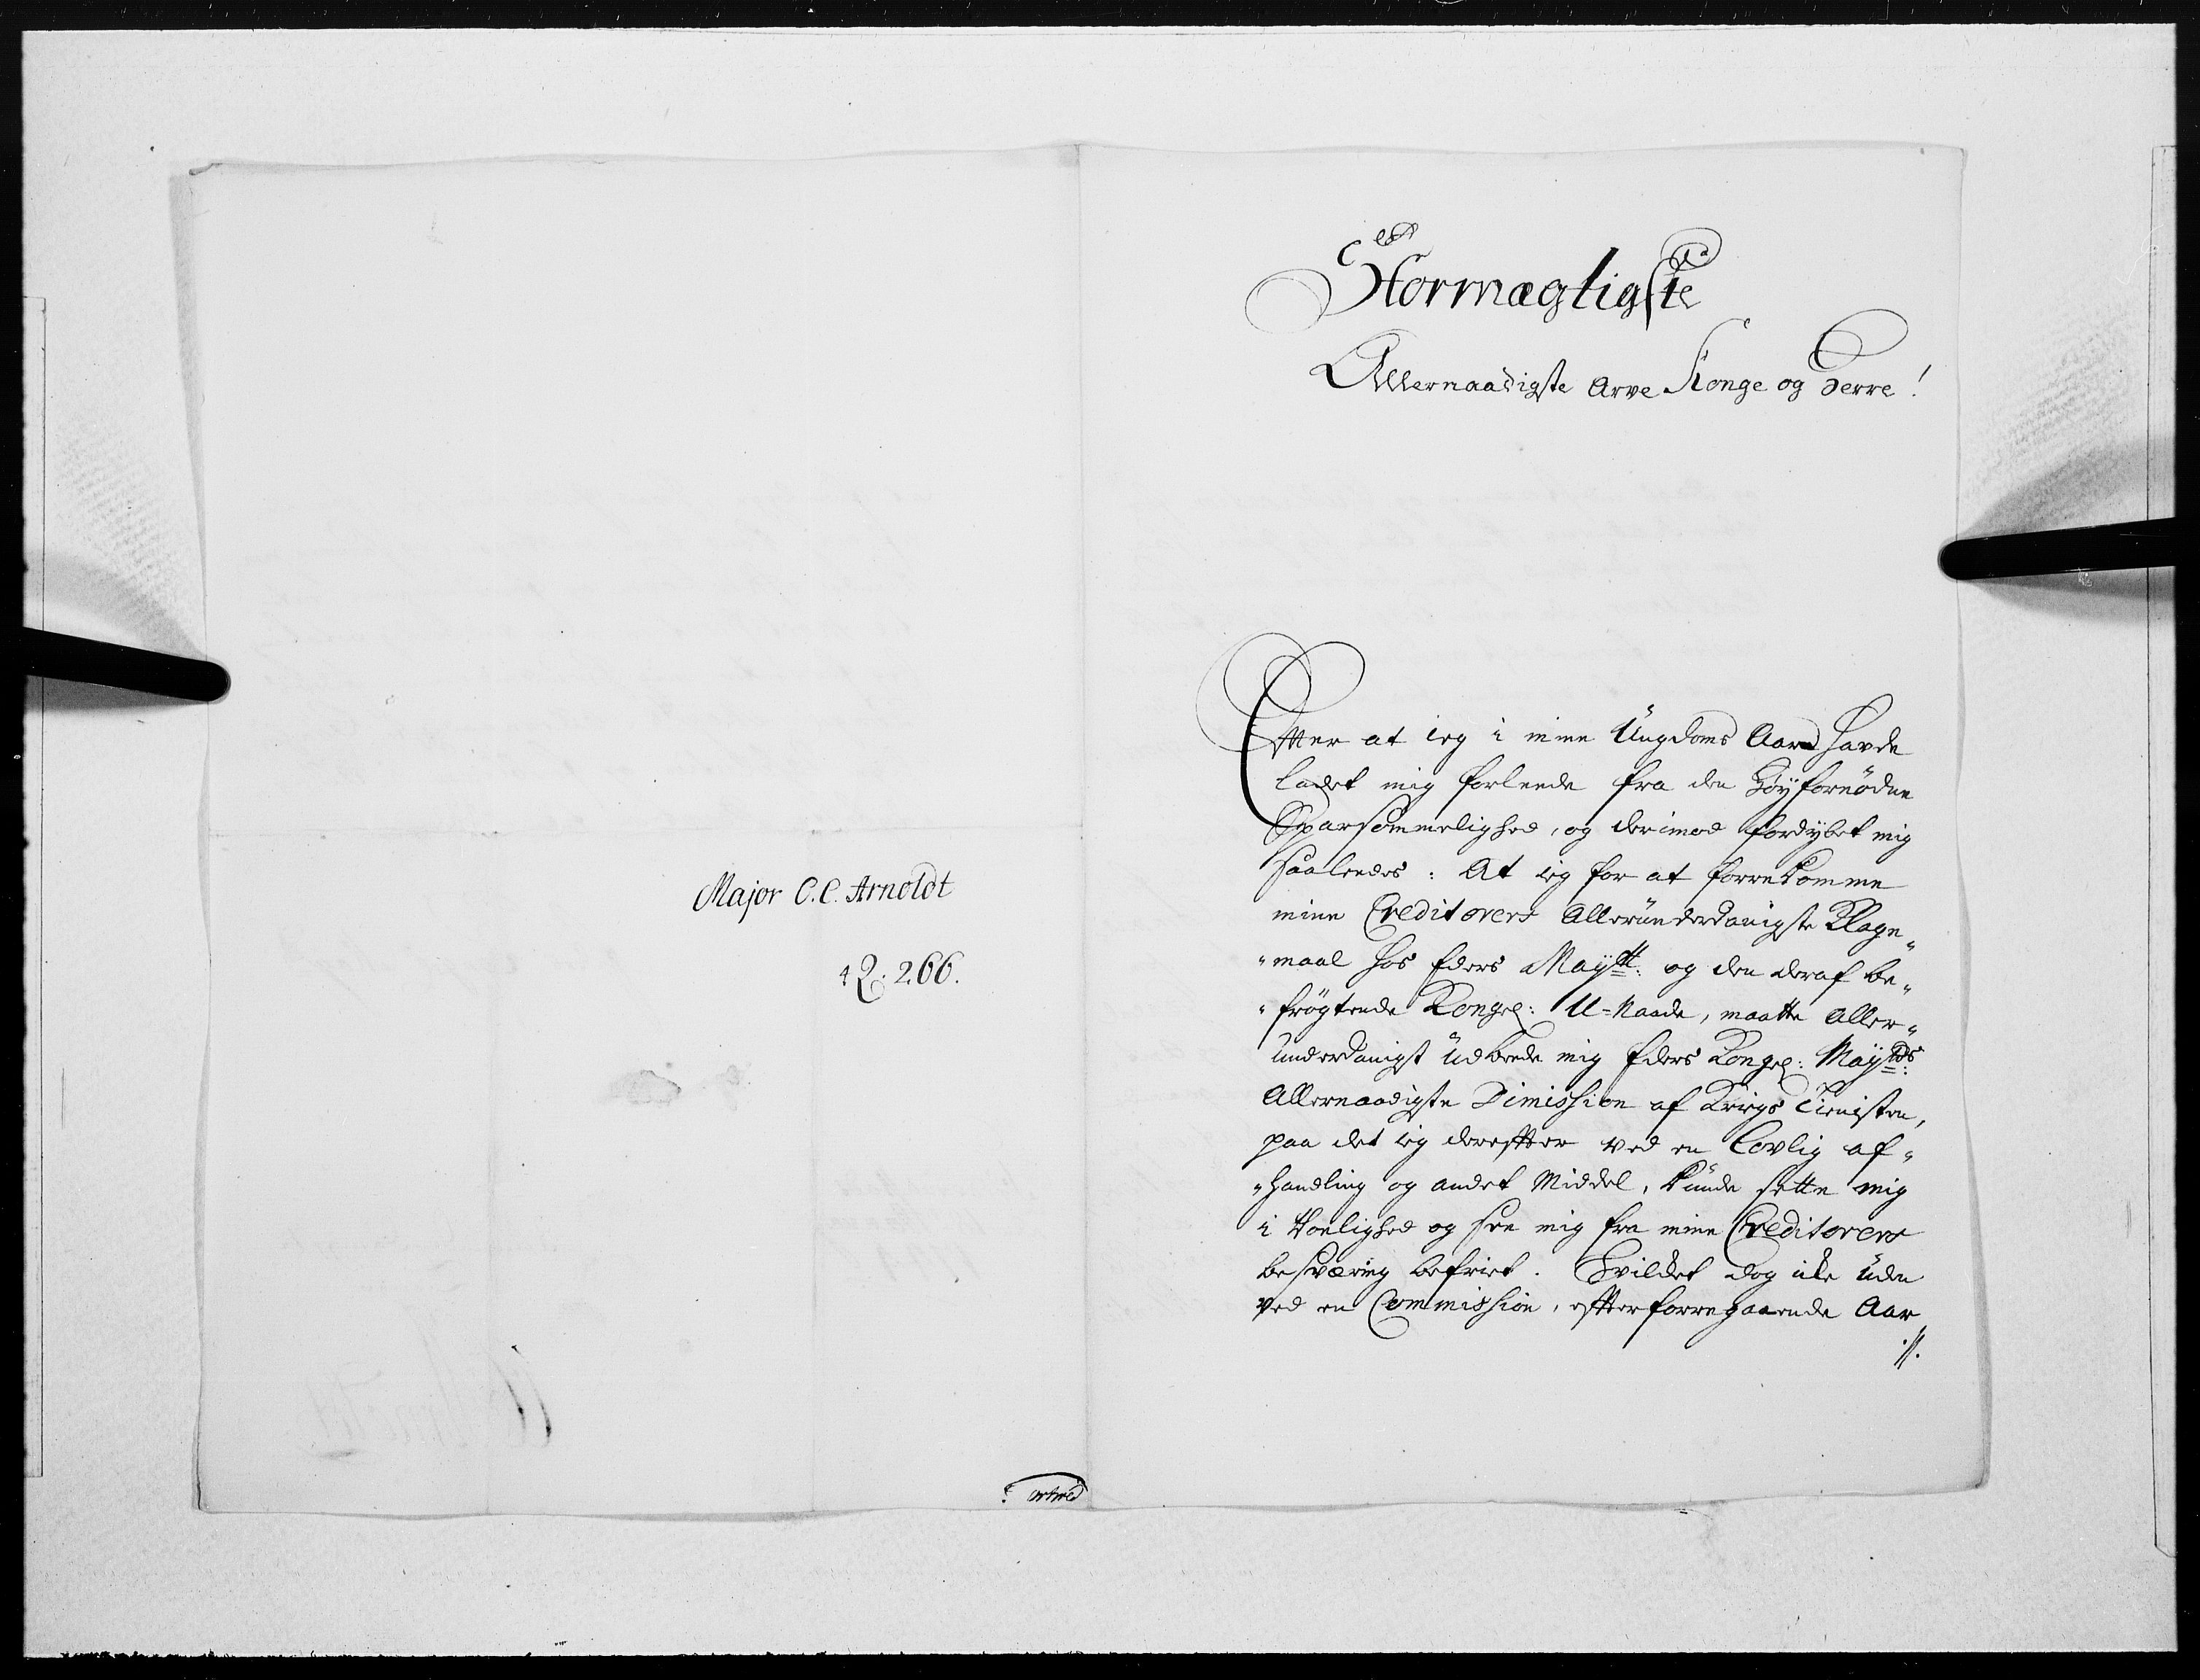 Major C. C. Arnoldt
42: 266.
Stormægtigste
Allernaadigste Arve Konge og Herre!
Effter at ieg i mine Ungdoms Aar havde
ladet mig forleede fra den Høyfornödne
Sparsommelighed, og derimod fordybet mig
saaleedes: At ieg for at forrekomme
mine Creditorers Alleründerdanigste Klage„
„maal hos Eders Maytt: og den deraf be„
„frögtende Kongel: U=Naade, maatte Aller„
underdanigst üdbede mig Eders Kongel: Maytds:
Allernaadigste Dimission af Krigs Tienisten,
paa det ieg dereffter ved en Lovlig af„
„handling og andet Middel, kunde sette mig
i Roelighed og see mig fra mine Creditorers
besværing befriet. Hvilket dog icke uden
ved en Commission, effter forregaaende Aar
./.